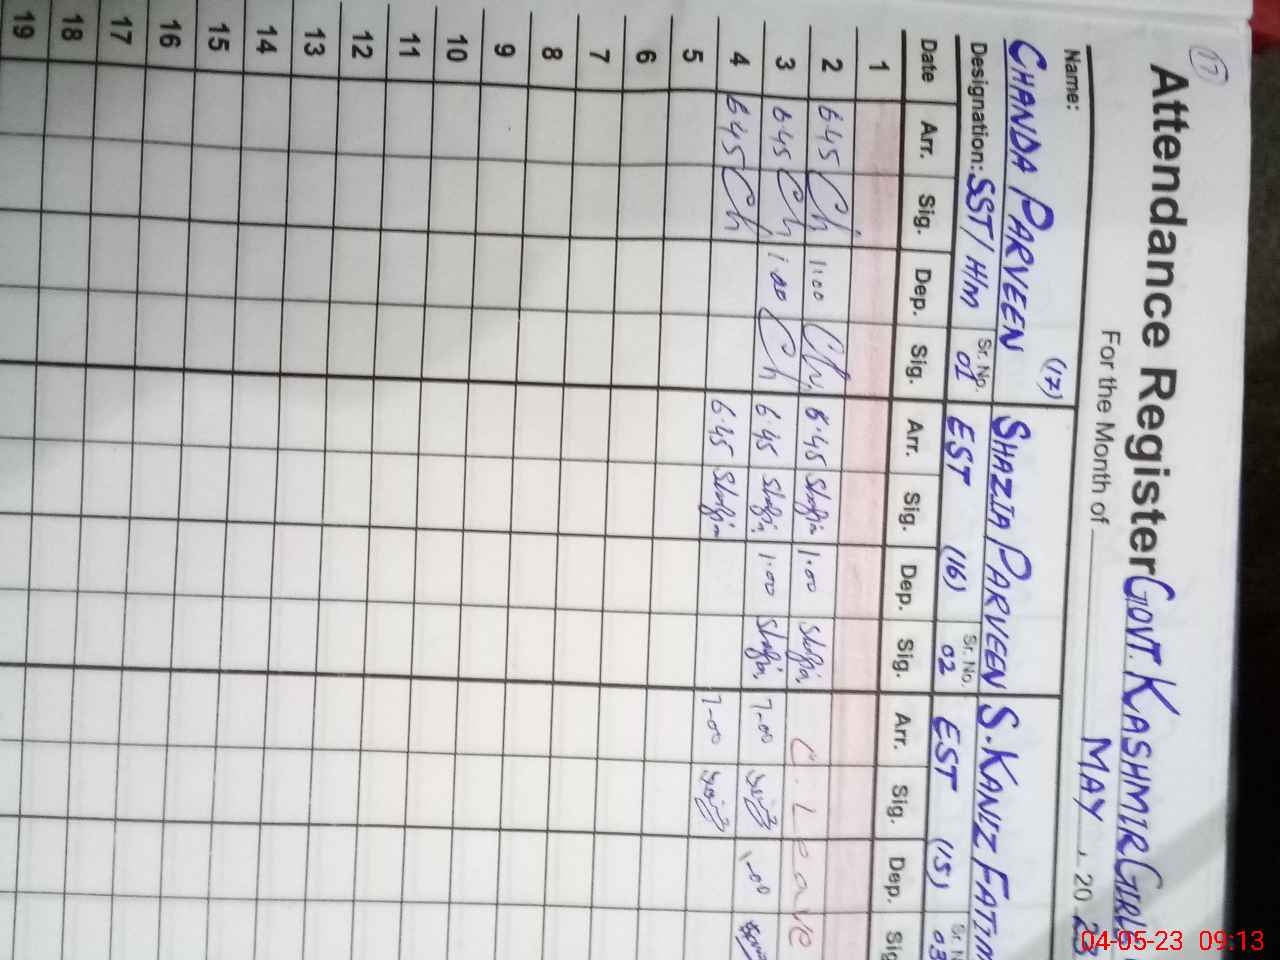 17
Attendance Register GOVT. KASHMIR GIRL
For the Month of MAY, 2023
Name: (17)
CHANDA PARVEEN SHAZIA PARVEEN S. KANIZ FATIM
Designation: SST / H/m Sr. No. 01 EST (16) Sr. No. 02 EST (15) Sr. N 03
Date Arr. Sig. Dep. Sig. Arr. Sig. Dep. Sig. Arr. Sig. Dep. Sig
1
2 6.45 Ch 1:00 Ch 6.45 Shazia 1.00 Shazia C. Leave
3 6.45 Ch 1.00 Ch 6.45 Shazia 1.00 Shazia 7-00 1-00
4 6.45 Ch 6.45 Shazia 7-00
5
6
7
8
9
10
11
12
13
14
15
16
17
18
19
04-05-23 09:13